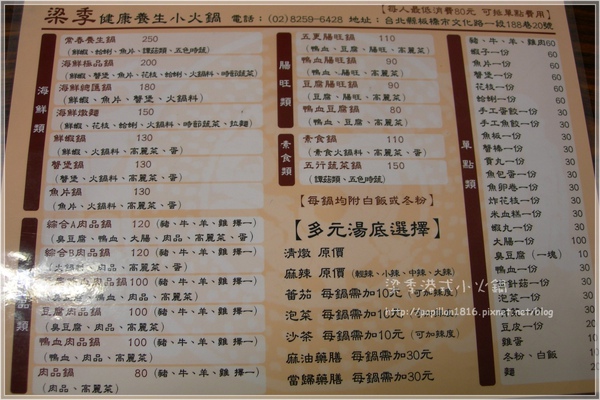 梁季健康養生小火鍋 電話：(02)8259-6428 地址：台北縣板橋市文化路一段188巷20號
【每人最低消費80元 可抵單點費用】
海鮮類
常春養生鍋 250
（鮮蝦、蛤蜊、魚片、蕈菇類、五色時蔬）
海鮮極品鍋 200
（鮮蝦、蟹堡、魚片、花枝、蛤蜊、火鍋料、時節蔬菜）
海鮮總匯鍋 180
（鮮蝦、魚片、蟹堡、火鍋料）
海鮮燉麵 150
（鮮蝦、花枝、蛤蜊、火鍋料、時節蔬菜、拉麵）
鮮蝦鍋 130
（鮮蝦、火鍋料、高麗菜、蛋）
蟹堡鍋 130
（蟹堡、火鍋料、高麗菜、蛋）
魚片鍋 130
（魚片、火鍋料、高麗菜、蛋）
綜合A肉品鍋 120（豬、牛、羊、雞 擇一）
（臭豆腐、鴨血、大腸、肉品、高麗菜、蛋）
綜合B肉品鍋 120（豬、牛、羊、雞 擇一）
100（豬、牛、羊、雞 擇一）
豆腐肉品鍋 100（豬、牛、羊、雞 擇一）
（臭豆腐、肉品、高麗菜）
鴨血肉品鍋 100（豬、牛、羊、雞 擇一）
（鴨血、肉品、高麗菜）
肉品鍋 80（豬、牛、羊、雞 擇一）
（肉品、高麗菜）
腸旺類
五更腸旺鍋 110
（鴨血、豆腐、腸旺、高麗菜）
鴨血腸旺鍋 90
（鴨血、腸旺、高麗菜）
豆腐腸旺鍋 90
（豆腐、腸旺、高麗菜）
鴨血豆腐鍋 80
（鴨血、豆腐、高麗菜）
素食類
素食鍋 110
（素食火鍋料、高麗菜、蛋）
五行蔬菜鍋 150
（蕈菇類、五色時蔬）
【每鍋均附白飯或冬粉】
【多元湯底選擇】
清燉 原價
麻辣 原價（輕辣、小辣、中辣、大辣）
番茄 每鍋需加10元（可加辣度）
泡菜 每鍋需加10元（可加辣度）
沙茶 每鍋需加10元（可加辣度）
麻油藥膳 每鍋需加30元
當歸藥膳 每鍋需加30元
單點類
豬、牛、羊、雞肉 60
蝦子一份 60
魚片一份 60
蟹堡一份 60
花枝一份 60
蛤蜊一份 60
手工蛋餃一份 30
手工魚餃一份 30
魚板一份 30
蟹棒一份 30
貢丸一份 30
魚包蛋一份 30
魚卵卷一份 30
炸花枝一份 30
米血糕一份 30
蝦丸一份 30
大腸一份 100
臭豆腐（一塊） 30
鴨血一份 30
金針菇一份 30
泡菜一份 30
豆皮一份
雞蛋
冬粉、白飯
麵 20
梁季港式小火鍋
http://papillon1816.pixnet.net/blog